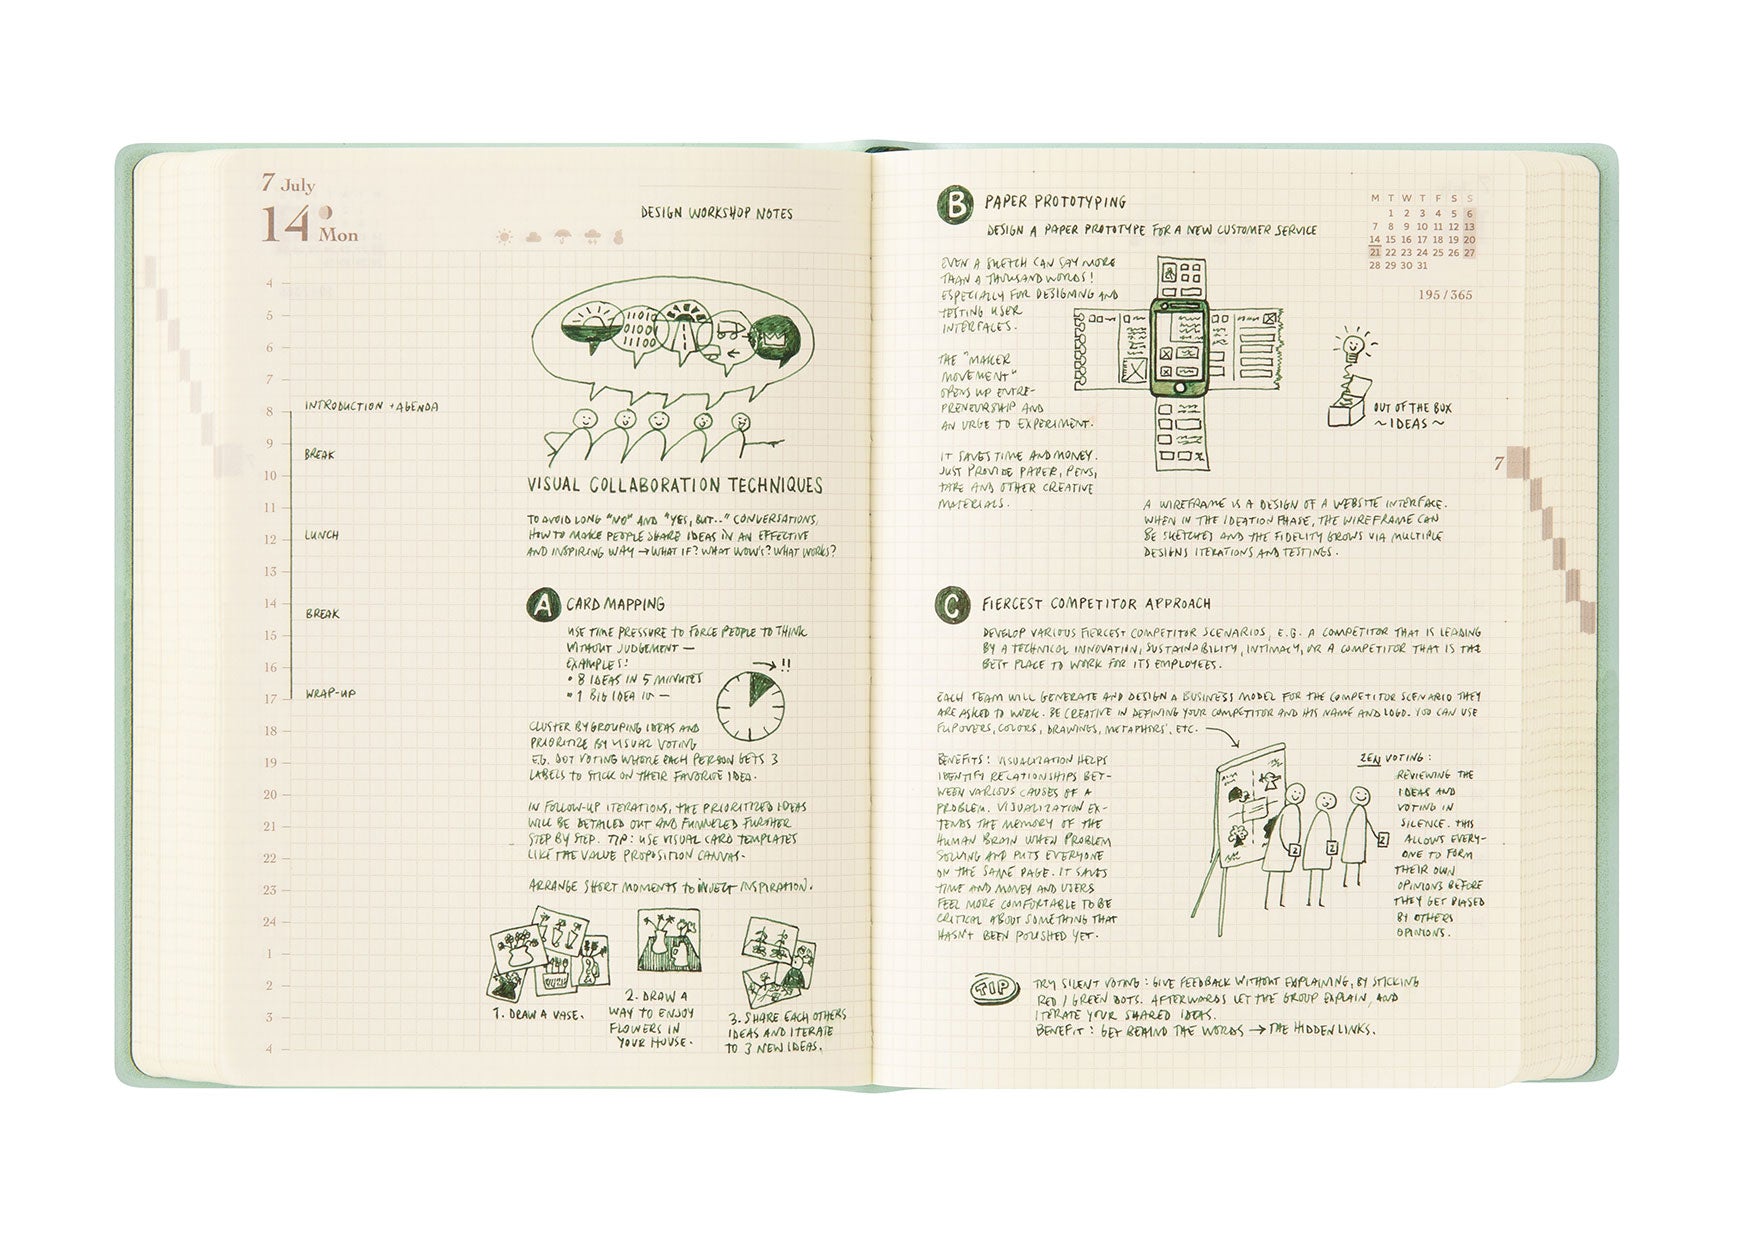 7 July
14 Mon
DESIGN WORKSHOP NOTES
4
5
6
7
8
9
10
11
12
13
14
15
16
17
18
19
20
21
22
23
24
1
2
3
4
INTRODUCTION + AGENDA
BREAK
LUNCH
BREAK
WRAP-UP
11010
01001
11100
VISUAL COLLABORATION TECHNIQUES
TO AVOID LONG "NO" AND "YES, BUT.." CONVERSATIONS,
HOW TO MAKE PEOPLE SHARE IDEAS IN AN EFFECTIVE
AND INSPIRING WAY → WHAT IF? WHAT WOW'S? WHAT WORKS?
A CARD MAPPING
USE TIME PRESSURE TO FORCE PEOPLE TO THINK
WITHOUT JUDGEMENT —
EXAMPLES!
• 8 IDEAS IN 5 MINUTES
• 1 BIG IDEA IN —
→ !!
CLUSTER BY GROUPING IDEAS AND
PRIORITIZE BY VISUAL VOTING
E.G. DOT VOTING WHERE EACH PERSON GETS 3
LABELS TO STICK ON THEIR FAVORITE IDEA.
IN FOLLOW-UP ITERATIONS, THE PRIORITIZED IDEAS
WILL BE DETAILED OUT AND FUNNELED FURTHER
STEP BY STEP. TIP: USE VISUAL CARD TEMPLATES
LIKE THE VALUE PROPOSITION CANVAS.
ARRANGE SHORT MOMENTS TO INJECT INSPIRATION.
1. DRAW A VASE.
2. DRAW A
WAY TO ENJOY
FLOWERS IN
YOUR HOUSE.
3. SHARE EACH OTHERS
IDEAS AND ITERATE
TO 3 NEW IDEAS.
B PAPER PROTOTYPING
DESIGN A PAPER PROTOTYPE FOR A NEW CUSTOMER SERVICE
M T W T F S S
1 2 3 4 5 6
7 8 9 10 11 12 13
14 15 16 17 18 19 20
21 22 23 24 25 26 27
28 29 30 31
195/365
EVEN A SKETCH CAN SAY MORE
THAN A THOUSAND WORDS!
ESPECIALLY FOR DESIGNING AND
TESTING USER
INTERFACES.
THE "MAKER
MOVEMENT"
OPENS UP ENTRE-
PRENEURSHIP AND
AN URGE TO EXPERIMENT.
IT SAVES TIME AND MONEY.
JUST PROVIDE PAPER, PENS,
TAPE AND OTHER CREATIVE
MATERIALS.
OUT OF THE BOX
~ IDEAS ~
7
A WIREFRAME IS A DESIGN OF A WEBSITE INTERFACE.
WHEN IN THE IDEATION PHASE, THE WIREFRAME CAN
BE SKETCHED AND THE FIDELITY GROWS VIA MULTIPLE
DESIGNS ITERATIONS AND TESTINGS.
C FIERCEST COMPETITOR APPROACH
DEVELOP VARIOUS FIERCEST COMPETITOR SCENARIOS, E.G. A COMPETITOR THAT IS LEADING
BY A TECHNICAL INNOVATION, SUSTAINABILITY, INTIMACY, OR A COMPETITOR THAT IS THE
BEST PLACE TO WORK FOR ITS EMPLOYEES.
EACH TEAM WILL GENERATE AND DESIGN A BUSINESS MODEL FOR THE COMPETITOR SCENARIO THEY
ARE ASKED TO WORK. BE CREATIVE IN DEFINING YOUR COMPETITOR AND HIS NAME AND LOGO. YOU CAN USE
FLIPOVERS, COLORS, DRAWINGS, METAPHORS, ETC.
BENEFITS: VISUALIZATION HELPS
IDENTIFY RELATIONSHIPS BET-
WEEN VARIOUS CAUSES OF A
PROBLEM. VISUALIZATION EX-
TENDS THE MEMORY OF THE
HUMAN BRAIN WHEN PROBLEM
SOLVING AND PUTS EVERYONE
ON THE SAME PAGE. IT SAVES
TIME AND MONEY AND USERS
FEEL MORE COMFORTABLE TO BE
CRITICAL ABOUT SOMETHING THAT
HASN'T BEEN POLISHED YET.
2
2
2
ZEN VOTING:
REVIEWING THE
IDEAS AND
VOTING IN
SILENCE. THIS
ALLOWS EVERY-
ONE TO FORM
THEIR OWN
OPINIONS BEFORE
THEY GET BIASED
BY OTHERS
OPINIONS.
TIP
TRY SILENT VOTING: GIVE FEEDBACK WITHOUT EXPLAINING, BY STICKING
RED / GREEN DOTS. AFTERWORDS LET THE GROUP EXPLAIN, AND
ITERATE YOUR SHARED IDEAS.
BENEFIT: GET BEHIND THE WORDS → THE HIDDEN LINKS.